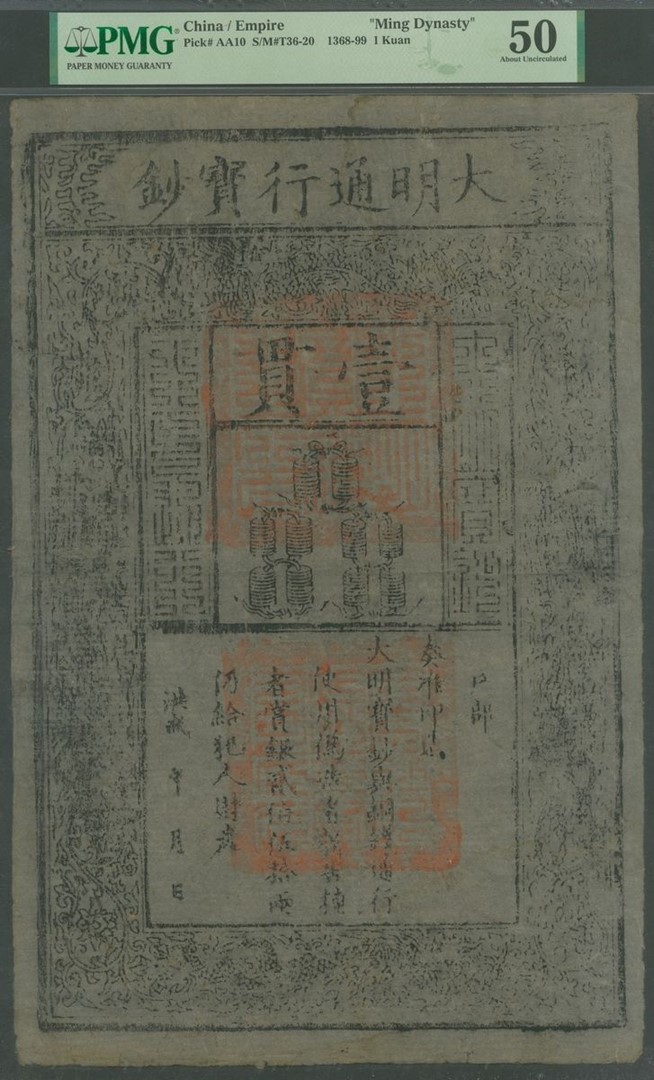 PMG
PAPER MONEY GUARANTY
China / Empire "Ming Dynasty"
Pick# AA10 S/M#T36-20 1368-99 1 Kuan
50
About Uncirculated
大明通行寶鈔
壹貫
戶部
奏准印造
大明寶鈔與銅錢通行
使用偽造者斬告捕
者賞銀貳佰伍拾兩
仍給犯人財產
洪武 年 月 日